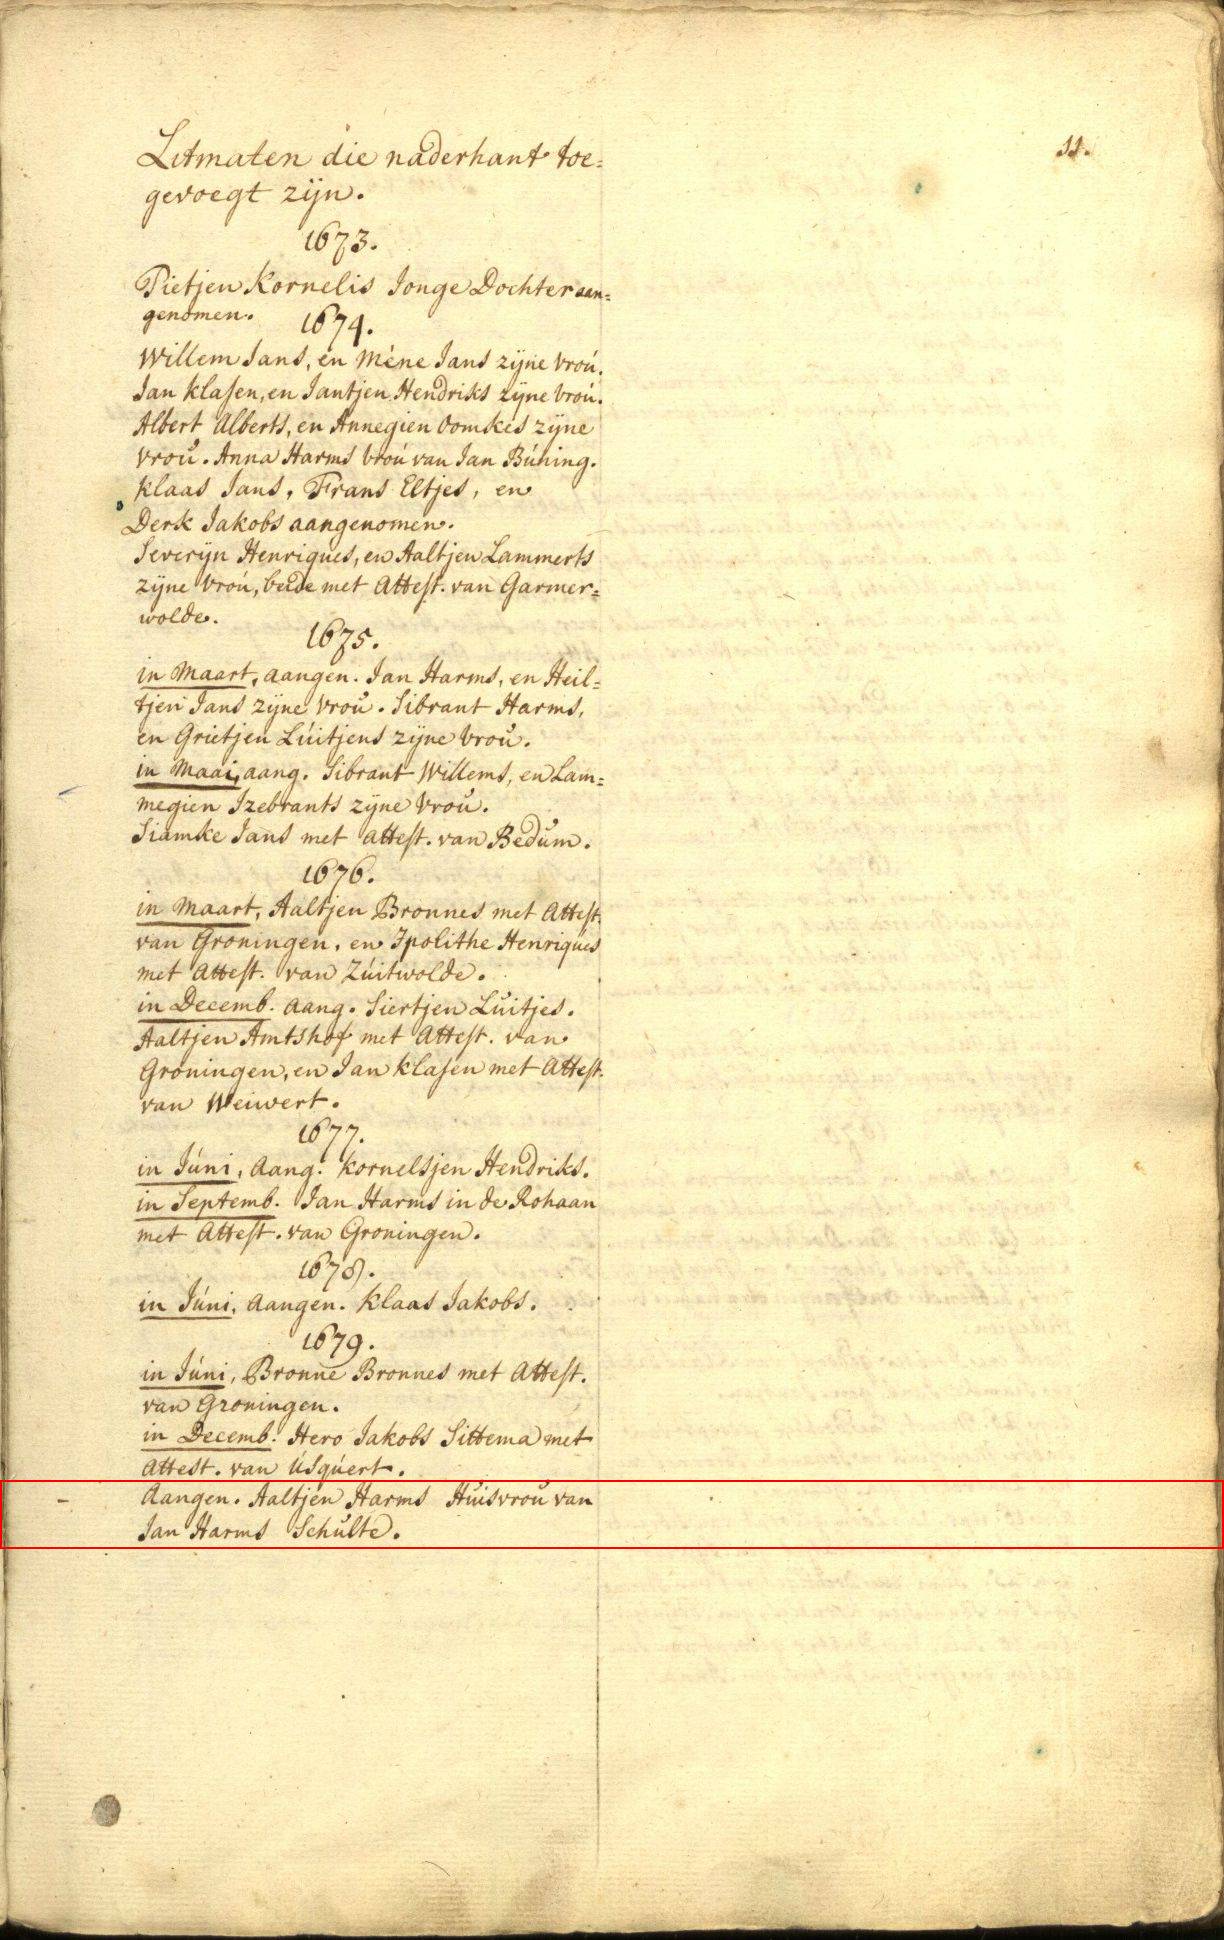 Litmaten die naderhant toe=
gevoegt zijn.
11.
1673.
Pietjen Kornelis Jonge Dochter aan=
genomen.
1674.
Willem Jans, en Mène Jans zijne vroú.
Jan Klasen, en Jantjen Hendriks zijne vroú.
Albert Alberts, en Annegien Oomkes zijne
vroú. Anna Harms vroú van Jan Búning.
Klaas Jans, Frans Eltjes, en
Derk Jakobs aangenomen.
Severijn Henriques, en Aaltjen Lammerts
zijne vroú, beide met Attest. van Garmer=
wolde.
1675.
in Maart, aangen. Jan Harms, en Heil=
tjen Jans zijne vroú. Sibrant Harms,
en Grietjen Lúitjens zijne vroú.
in Maai, aang. Sibrant Willems, en Lam=
megien Izebrants zijne vroú.
Siamke Jans met Attest. van Bedúm.
1676.
in Maart, Aaltjen Bronnes met Attest.
van Groningen, en Ipolithe Henriqúes
met Attest. van Zúitwolde.
in Decemb. aang. Siertjen Lúitjes.
Aaltjen Amtshof met Attest. van
Groningen, en Jan Klasen met Attest.
van Weiwert.
1677.
in Júni, aang. Kornelsjen Hendriks.
in Septemb. Jan Harms in de Rohaan
met Attest. van Groningen.
1678.
in Júni, aangen. Klaas Jakobs.
1679.
in Júni, Bronne Bronnes met Attest.
van Groningen.
in Decemb. Hero Jakobs Sittema met
Attest. van Úsqúert.
Aangen. Aaltjen Harms Húisvroú van
Jan Harms Schúlte.